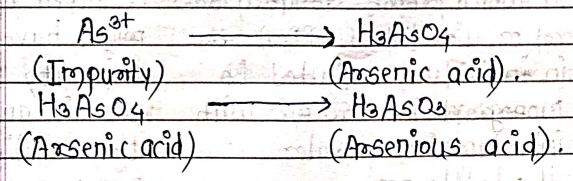 As³⁺ ⟶ H₃AsO₄
(Impurity) (Arsenic acid).
H₃AsO₄ ⟶ H₃AsO₃
(Arsenic acid) (Arsenious acid).